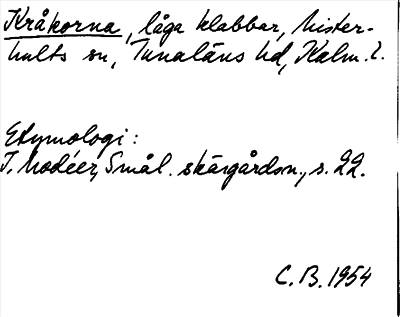 Kråkorna, låga klabbar, Mister-
hults sn, Tunaläns hd, Kalm. l.
Etymologi:
I. Modéer, Smål. skärgårdsn., s. 22.
C. B. 1954